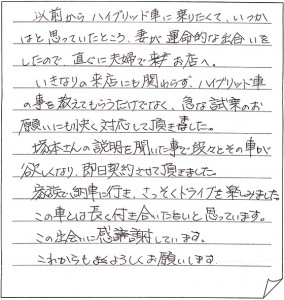 以前からハイブリッド車に乗りたくて、いつか
はと思っていたところ、妻が運命的な出合いを
したので、直ぐに夫婦で来お店へ。
いきなりの来店にも関わらず、ハイブリッド車
の事を教えてもらうだけでなく、急な試乗のお
願いにも快く対応して頂きました。
塚本さんの説明を聞いた事で段々とその車が
欲しくなり、即日契約させて頂きました。
家族で納車に行き、さっそくドライブを楽しみました。
この車とは長く付き合いたいと思っています。
この出会いに感謝しています。
これからもよろしくお願いします